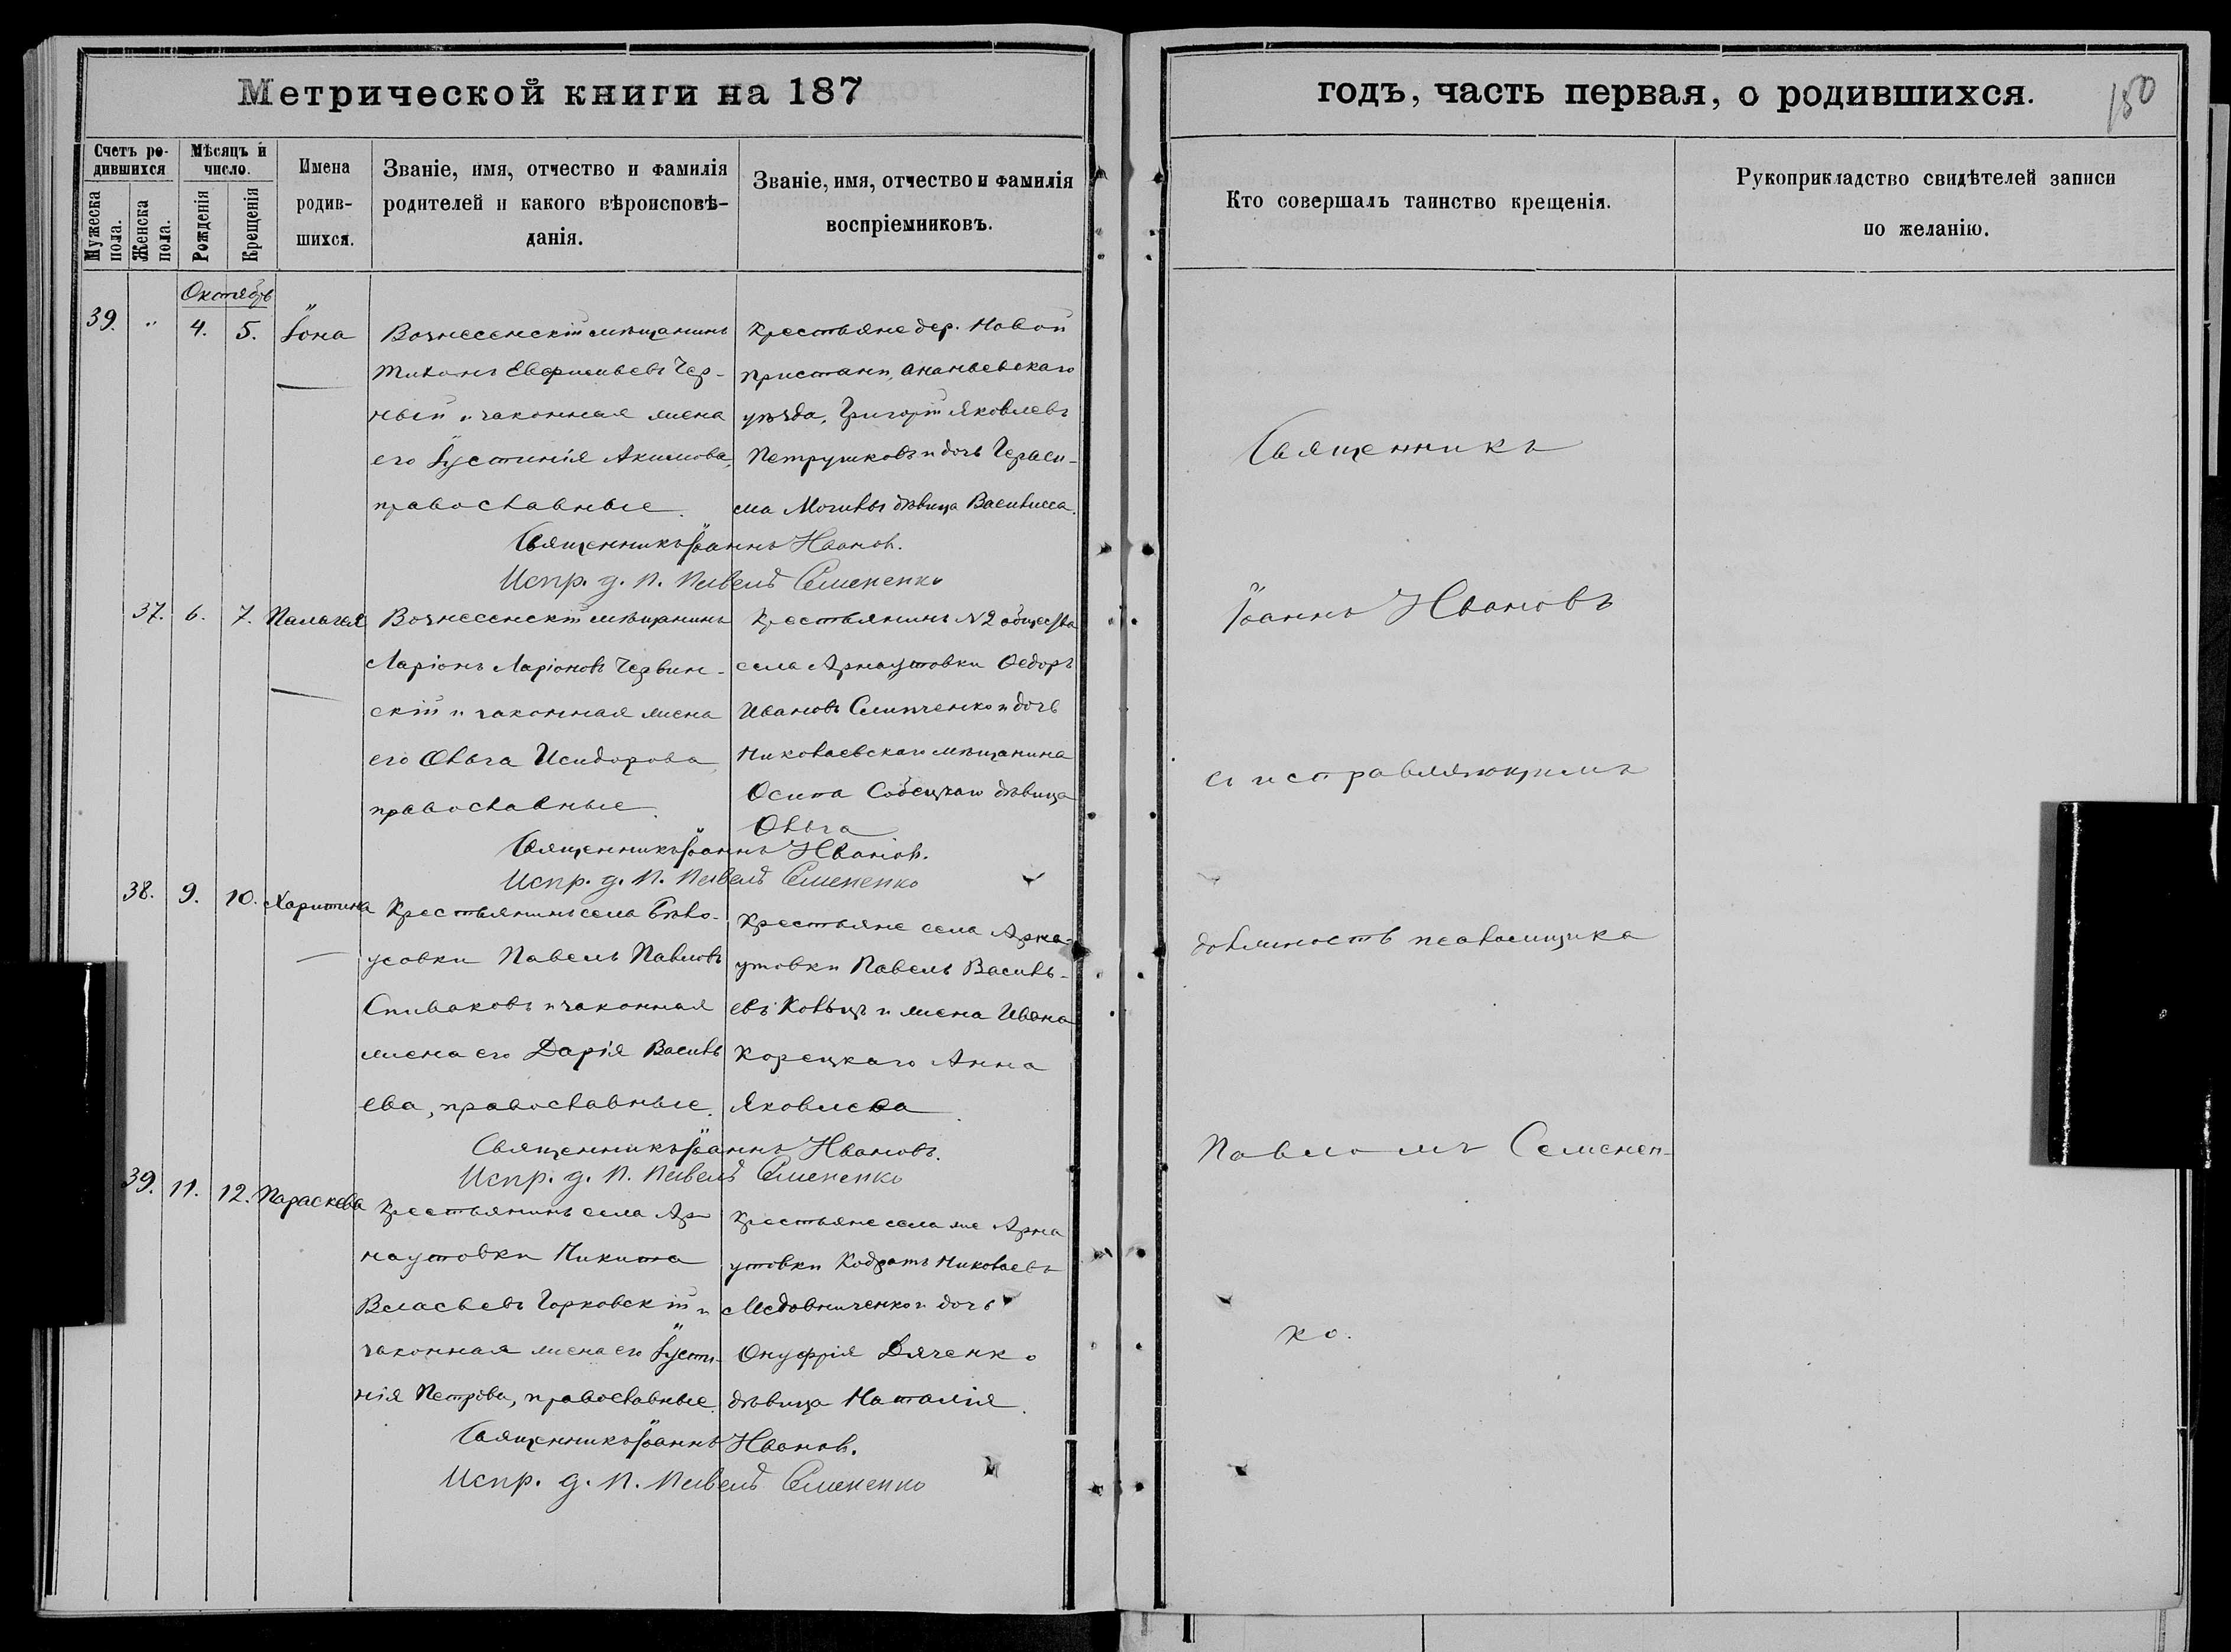 Метрической книги на 187
годъ, часть первая, о родившихся.
150
Счетъ ро-
дившихся
Мужеска
пола.
Женска
пола.
Мѣсяцъ и
число.
Рожденія
Крещенія
Имена
родив-
шихся.
Званіе, имя, отчество и фамилія
родителей и какого вѣроисповѣ-
данія.
Званіе, имя, отчество и фамилія
воспріемниковъ.
Кто совершалъ таинство крещенія.
Рукоприкладство свидѣтелей записи
по желанію.
Октябрь
39. „ 4. 5. Іона
Вознесенскій мѣщанинъ
Тихонъ Евфимьевъ Чер-
ный и законная жена
его Іустинія Акимова,
православные.
Крестьяне дер. Новой
Пристани, Ананьевскаго
уѣзда, Григорій Яковлевъ
Петрушковъ и дочь Гераси-
ма Могилы дѣвица Василисса.
Священникъ Іоаннъ Ивановъ.
Испр. д. П. Павелъ Семененко
37. 6. 7. Палагея
Вознесенскій мѣщанинъ
Ларіонъ Ларіоновъ Червин-
скій и законная жена
его Ольга Исидорова,
православные.
Крестьянинъ N2 общества
села Арнаутовки Ѳедоръ
Ивановъ и дочь
Николаевскаго мѣщанина
Осипа Собецкаго дѣвица
Ольга
Священникъ Іоаннъ Ивановъ.
Испр. д. П. Павелъ Семененко
38. 9. 10. Харитина
Крестьянинъ села Бѣло-
усовки Павелъ Павловъ
Спиваковъ и законная
жена его Дарія Василь
ева, православные.
Крестьяне села Арна-
утовки Павелъ Василь-
евъ и жена Ивана
Корецкаго Анна
Яковлева.
Священникъ Іоаннъ Ивановъ.
Испр. д. П. Павелъ Семененко
39. 11. 12. Параскева
Крестьянинъ села Ар
наутовки Никита
Власьевъ Горковскій и
законная жена его Іусти-
нія Петрова, православные.
Крестьяне села же Арна
утовки Кодратъ Николаевъ
Медовниченко и дочь
Онуфрія Дяченко
дѣвица Наталія.
Священникъ Іоаннъ Ивановъ.
Испр. д. П. Павелъ Семененко
Священникъ
Іоаннъ Ивановъ
съ исправляющимъ
должность псаломщика
Павломъ Семенен-
ко.